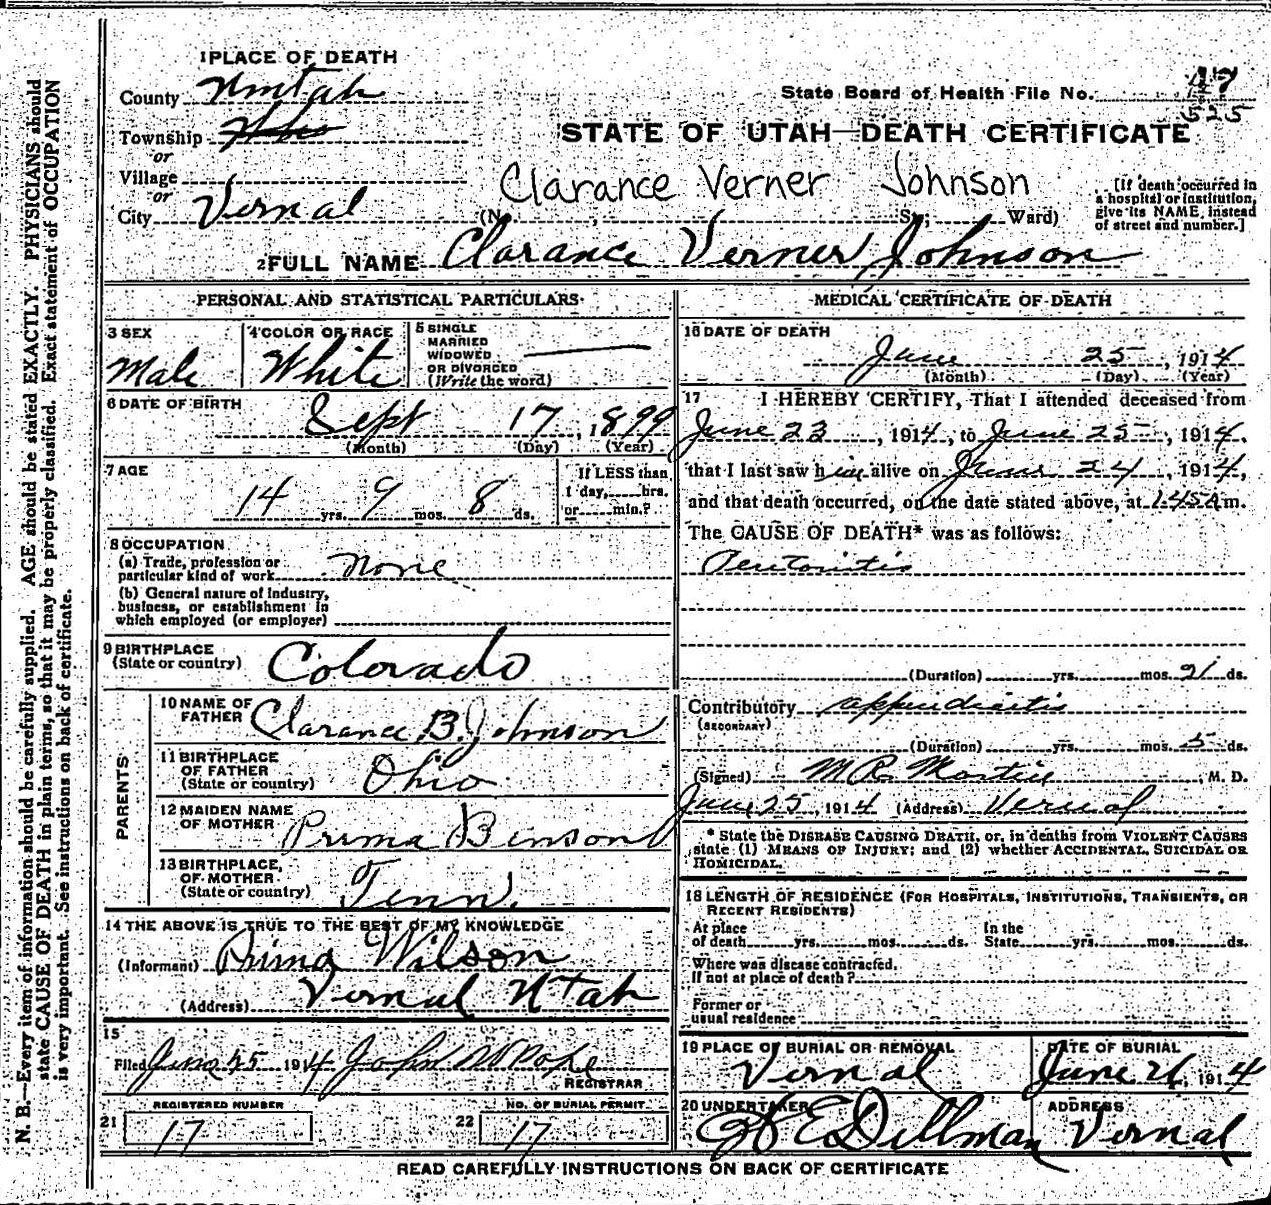 1 PLACE OF DEATH
County Uintah
State Board of Health File No. 17
625
Township
or
STATE OF UTAH—DEATH CERTIFICATE
Village
or
Clarance Verner Johnson
City Vernal (No. St.; Ward)
[If death occurred in
a hospital or institution,
give its NAME, instead
of street and number.]
2 FULL NAME Clarance Verner Johnson
PERSONAL AND STATISTICAL PARTICULARS
3 SEX
Male
4 COLOR OR RACE
White
5 SINGLE
MARRIED
WIDOWED
OR DIVORCED
(Write the word)
6 DATE OF BIRTH
Sept 17, 1899
(Month) (Day) (Year)
7 AGE
14 yrs. 9 mos. 8 ds.
If LESS than
1 day, hrs.
or min.?
8 OCCUPATION
(a) Trade, profession or
particular kind of work None
(b) General nature of industry,
business, or establishment in
which employed (or employer)
9 BIRTHPLACE
(State or country) Colorado
PARENTS
10 NAME OF
FATHER Clarance B. Johnson
11 BIRTHPLACE
OF FATHER
(State or country) Ohio
12 MAIDEN NAME
OF MOTHER Prima Binson
13 BIRTHPLACE,
OF MOTHER
(State or country) Tenn.
14 THE ABOVE IS TRUE TO THE BEST OF MY KNOWLEDGE
(Informant) Prima Wilson
(Address) Vernal Utah
15
Filed June 25 1914 John N Pope
REGISTRAR
21 REGISTERED NUMBER
17
22 NO. OF BURIAL PERMIT
17
MEDICAL CERTIFICATE OF DEATH
16 DATE OF DEATH
June 25, 1914
(Month) (Day) (Year)
17 I HEREBY CERTIFY, That I attended deceased from
June 23, 1914, to June 25, 1914,
that I last saw him alive on June 24, 1914,
and that death occurred, on the date stated above, at 1.45 A m.
The CAUSE OF DEATH* was as follows:
Peritonitis
(Duration) yrs. mos. 21 ds.
Contributory appendicitis
(SECONDARY)
(Duration) yrs. mos. 5 ds.
(Signed) M R, M. D.
June 25, 1914 (Address) Vernal
* State the DISEASE CAUSING DEATH, or, in deaths from VIOLENT CAUSES
state (1) MEANS OF INJURY; and (2) whether ACCIDENTAL, SUICIDAL OR
HOMICIDAL.
18 LENGTH OF RESIDENCE (FOR HOSPITALS, INSTITUTIONS, TRANSIENTS, OR
RECENT RESIDENTS)
At place
of death yrs. mos. ds.
In the
State yrs. mos. ds.
Where was disease contracted,
If not at place of death?
Former or
usual residence
19 PLACE OF BURIAL OR REMOVAL
Vernal
DATE OF BURIAL
June 26, 1914
20 UNDERTAKER
E Dillman
ADDRESS
Vernal
READ CAREFULLY INSTRUCTIONS ON BACK OF CERTIFICATE
N. B.—Every item of information should be carefully supplied. AGE should be stated EXACTLY. PHYSICIANS should
state CAUSE OF DEATH in plain terms, so that it may be properly classified. Exact statement of OCCUPATION
is very important. See instructions on back of certificate.